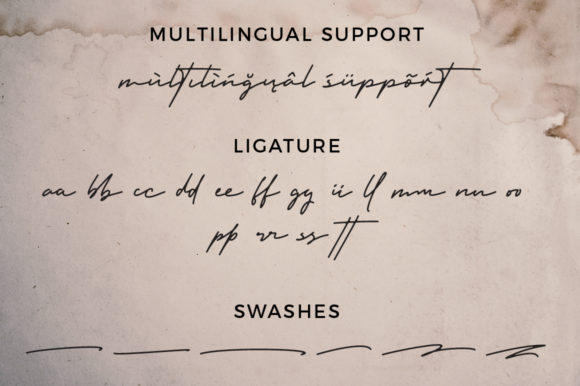 MULTILINGUAL SUPPORT
mùltılìńğųâl śüppõŕt
LIGATURE
aa bb cc dd ee ff gg ii ll mm nn oo
pp rr ss tt
SWASHES